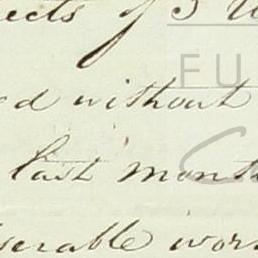 ects of 3
FU
ed without
last month
serable wor